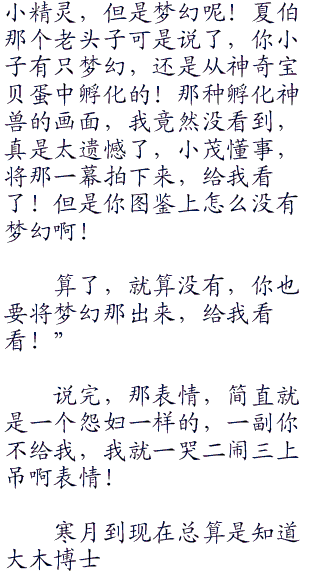 小精灵，但是梦幻呢！夏伯
那个老头子可是说了，你小
子有只梦幻，还是从神奇宝
贝蛋中孵化的！那种孵化神
兽的画面，我竟然没看到，
真是太遗憾了，小茂懂事，
将那一幕拍下来，给我看
了！但是你图鉴上怎么没有
梦幻啊！
算了，就算没有，你也
要将梦幻那出来，给我看
看！”
说完，那表情，简直就
是一个怨妇一样的，一副你
不给我，我就一哭二闹三上
吊啊表情！
寒月到现在总算是知道
大木博士